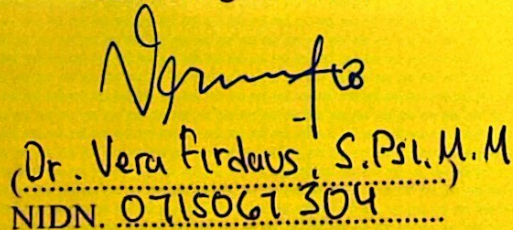 (Dr. Vera Firdaus, S.Psi, M.M)
NIDN. 0715067304